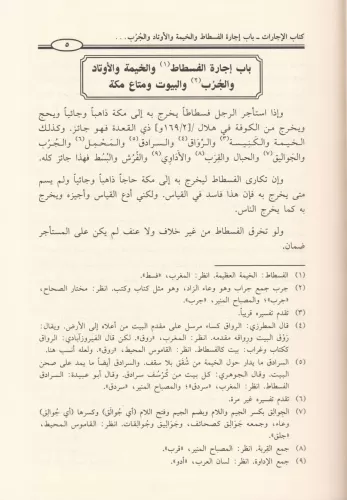 كتاب الإجارات - باب إجارة الفسطاط والخيمة والأوتاد والجُرُب . . .
٥
باب إجارة الفسطاط(١) والخيمة والأوتاد
والجُرُب(٢) والبيوت ومتاع مكة
وإذا استأجر الرجل فسطاطاً يخرج به إلى مكة ذاهباً وجائياً ويحج
ويخرج من الكوفة في هلال [١٦٩/٢و] ذي القعدة فهو جائز. وكذلك
الخيمة والكنيسة(٣) والرُّواق(٤) والسرادق(٥) والمَحْمِل(٦) والجُرُب
والجوالِق(٧) والحبال والقِرَب(٨) والأَدَاوِي(٩) والفُرُش والبُسُط فهذا جائز كله.
وإن تكارى الفسطاط ليخرج به إلى مكة حاجاً ذاهباً وجائياً ولم يسم
متى يخرج به فإن هذا فاسد في القياس. ولكني أدع القياس وأجيزه ويخرج
به كما يخرج الناس.
ولو تخرق الفسطاط من غير خلاف ولا عنف لم يكن على المستأجر
ضمان.
(١) الفسطاط: الخيمة العظيمة. انظر: المغرب، «فسط».
(٢) جرب جمع جراب وهو وعاء الزاد، وهو مثل كتاب وكتب. انظر: مختار الصحاح،
«جرب»؛ والمصباح المنير، «جرب».
(٣) تقدم تفسيره قريباً.
(٤) قال المطرزي: الرواق كساء مرسل على مقدم البيت من أعلاه إلى الأرض. ويقال:
رَوْق البيت ورواقه مقدمه. انظر: المغرب، «روق». لكن قال الفيروزآبادي: الرواق
ككتاب وغراب: بيت كالفسطاط. انظر: القاموس المحيط، «روق». ولعله أنسب هنا.
(٥) السرادق ما يدار حول الخيمة من شُقَق بلا سقف. والسرادق أيضاً ما يمد على صحن
البيت. وقال الجوهري: كل بيت من كُرْسُف سرادق. وقال أبو عبيدة: السرادق
الفسطاط. انظر: المغرب، «سردق»؛ والمصباح المنير، «سردق».
(٦) تقدم تفسيره غير مرة.
(٧) الجِوالِق بكسر الجيم واللام وبضم الجيم وفتح اللام (أي جُوالَق) وكسرها (أي جُوالِق)
وعاء، وجمعه جَوَالِق كصحائف، وجَوَالِيق وجُوالِقات. انظر: القاموس المحيط،
«جلق».
(٨) جمع القربة. انظر: المصباح المنير، «قرب».
(٩) جمع الإداوة. انظر: لسان العرب، «أدو».